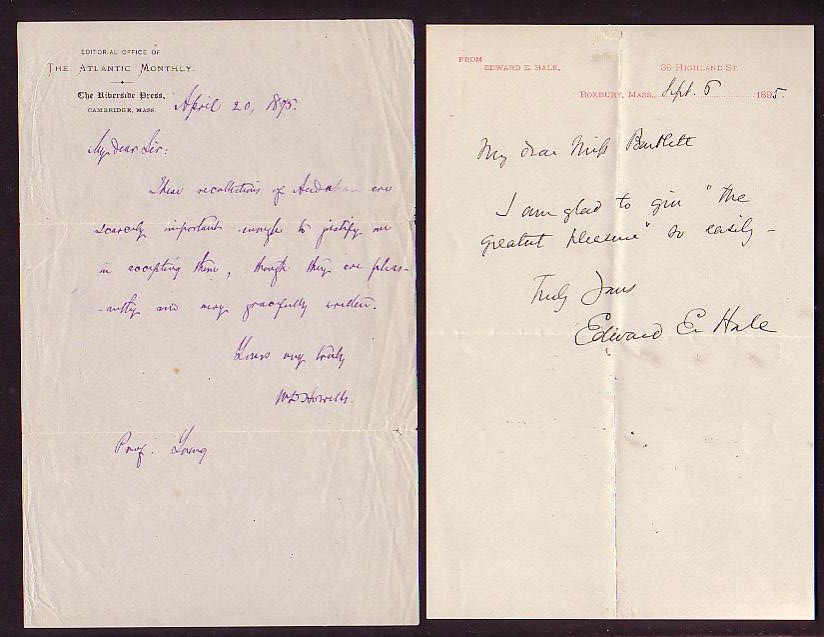 EDITORIAL OFFICE OF
THE ATLANTIC MONTHLY.
The Riverside Press,
CAMBRIDGE, MASS.
April 20, 1875.
My dear Sir:
These recollections of are
scarcely important enough to justify me
in accepting them, though they are pleas-
-antly and very gracefully written.
Yours very truly
W. D. Howells.
Prof. Young
FROM
EDWARD E. HALE,
39 HIGHLAND ST.
ROXBURY, MASS., Sept. 6 1895.
My dear Miss Bartlett
I am glad to give "the
greatest pleasure" so easily -
Truly Yours
Edward E. Hale